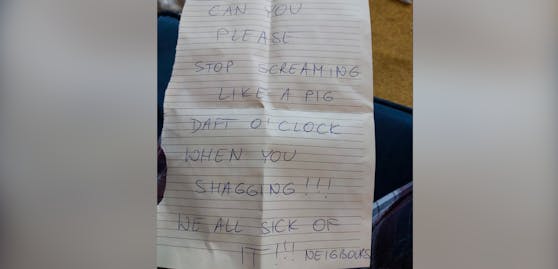 CAN YOU
PLEASE
STOP SCREAMING
LIKE A PIG
DAFT O'CLOCK
WHEN YOU
SHAGGING!!!
WE ALL SICK OF
IT!!! NEIGBOURS